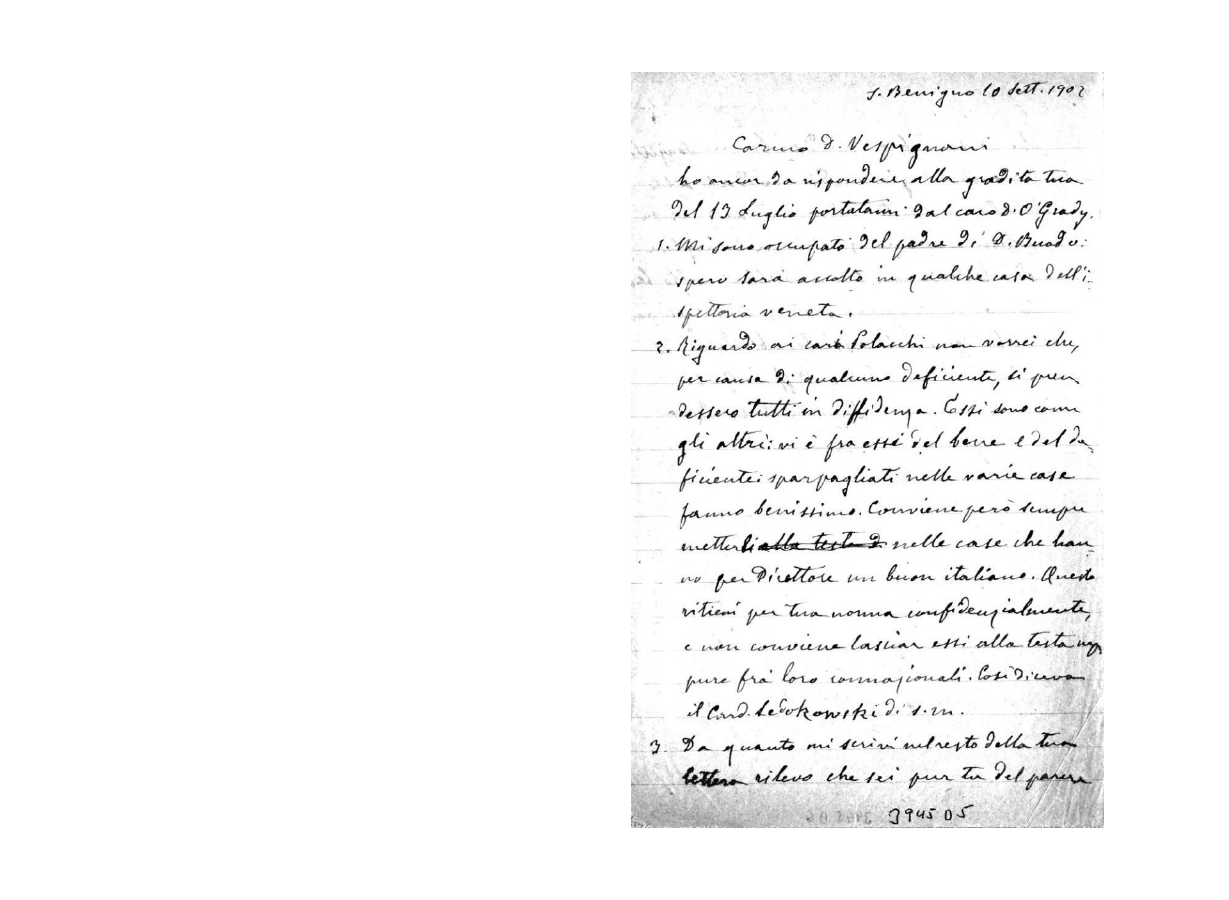 S. Benigno 10 Sett. 1902
Carmo D. Vespignani
ho ancor da rispondere alla gradita tua
del 13 Luglio portatami dal caro D. O'Grady.
1. Mi sono occupato del padre di D. Buodo:
spero sarà accolto in qualche casa dell'i-
spettoria veneta.
2. Riguardo ai cari Polacchi non vorrei che,
per causa di qualcuno deficiente, si pren
dessero tutti in diffidenza. Essi sono come
gli altri: vi è fra essi del bene e del de-
ficiente: sparpagliati nelle varie case
fanno benissimo. Conviene però sempre
metterli alla testa d nelle case che han-
no per Direttore un buon italiano. Questo
ritieni per tua norma confidenzialmente,
e non conviene lasciar essi alla testa nep
pure fra loro connazionali. Così diceva
il Card. Ledokowski di s. m.
3. Da quanto mi scrivi nel resto della tua
lettera rilevo che sei pur tu del parere
3945 05